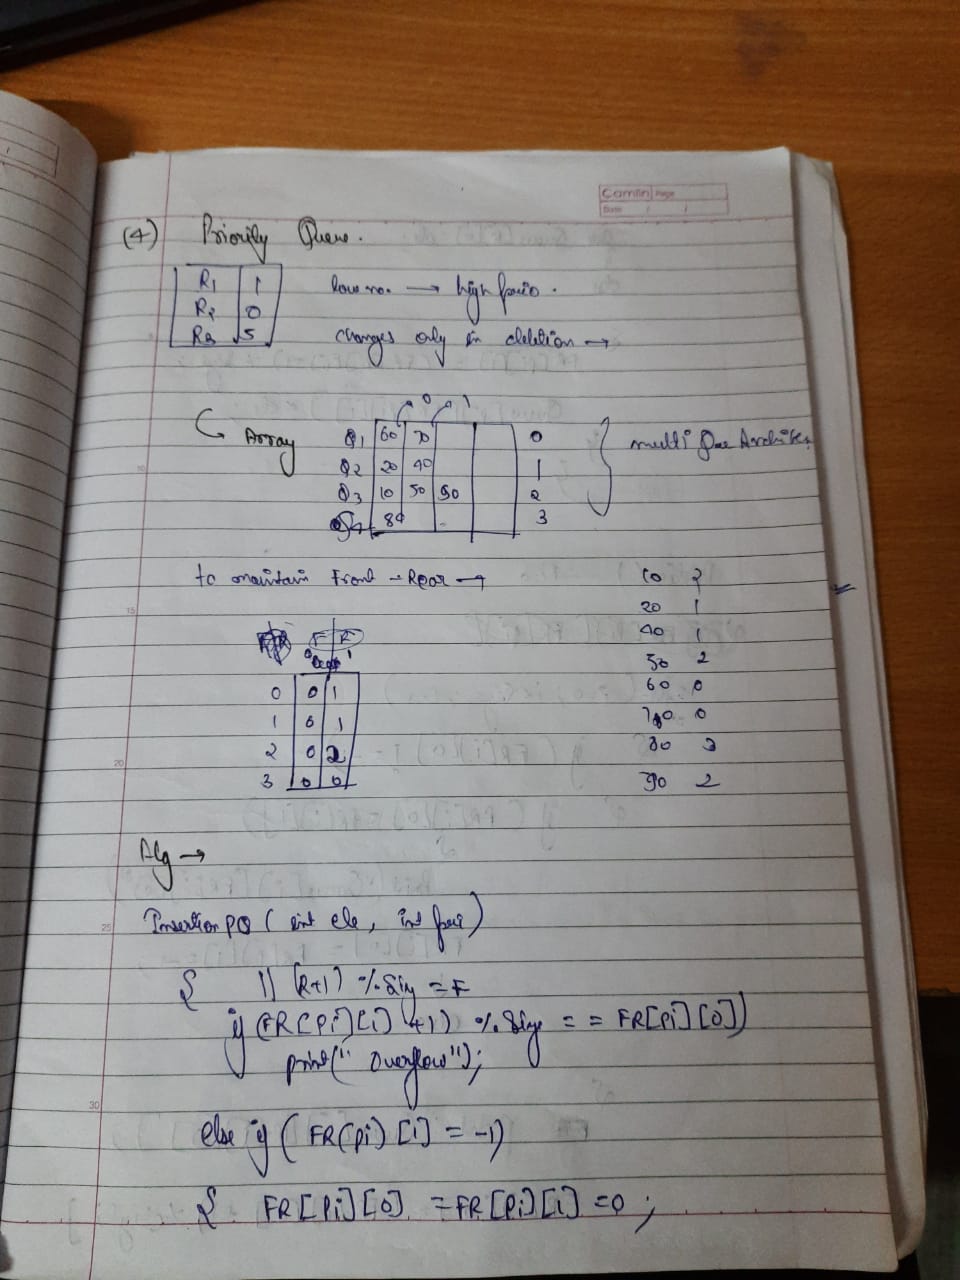 Camlin Page
Date / /
(4) Priority Queue.
R1 1
R2 0
R3 5
low no. → high prio.
changes only in deletion →
0 1
Array
Q1 60 70 0
Q2 20 40 1
Q3 10 50 90 2
Q4 80 3
multi Que
to maintain Front - Rear →
10 2
20 1
40 1
50 2
60 0
70 0
80 3
90 2
F R
0 1
0 0 1
1 0 1
2 0 2
3 0 0
Alg →
Insertion PQ ( int ele, int pri)
{ // (R+1) % Size = F
if (FR[Pi][1] +1) % Size = = FR[Pi][0])
print(" Overflow");
else if ( FR[Pi][1] = -1)
{ FR[Pi][0] = FR[Pi][1] = 0 ;
10
15
20
25
30